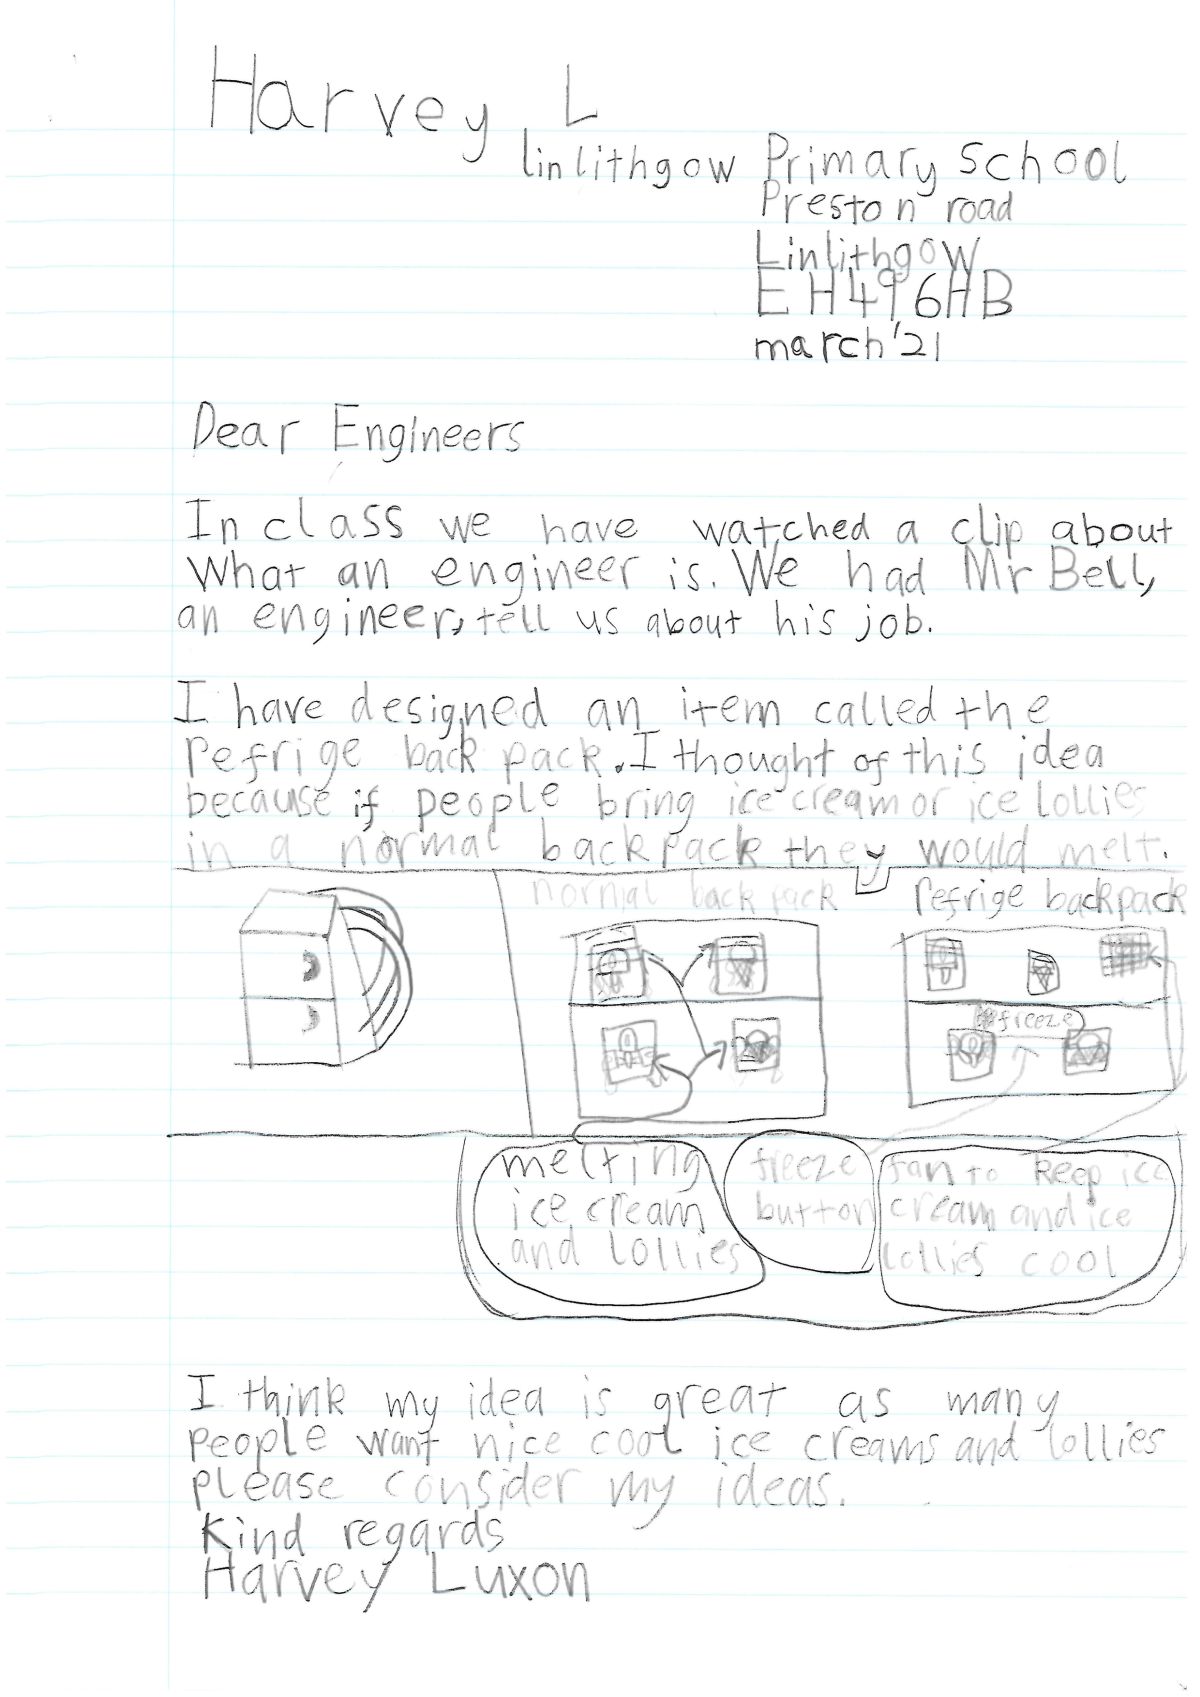 Harvey L
linlithgow Primary School
Preston road
Linlithgow
EH49 6HB
march '21
Dear Engineers
In class we have watched a clip about
What an engineer is. We had Mr Bell,
an engineer, tell us about his job.
I have designed an item called the
refrige back pack. I thought of this idea
because if people bring ice cream or ice lollies
in a normal backpack they would melt.
normal back pack
refrige backpack
freeze
melting
ice cream
and lollies
freeze
button
fan to keep ice
cream and ice
lollies cool
I think my idea is great as many
people want nice cool ice creams and lollies
please consider my ideas.
Kind regards
Harvey Luxon